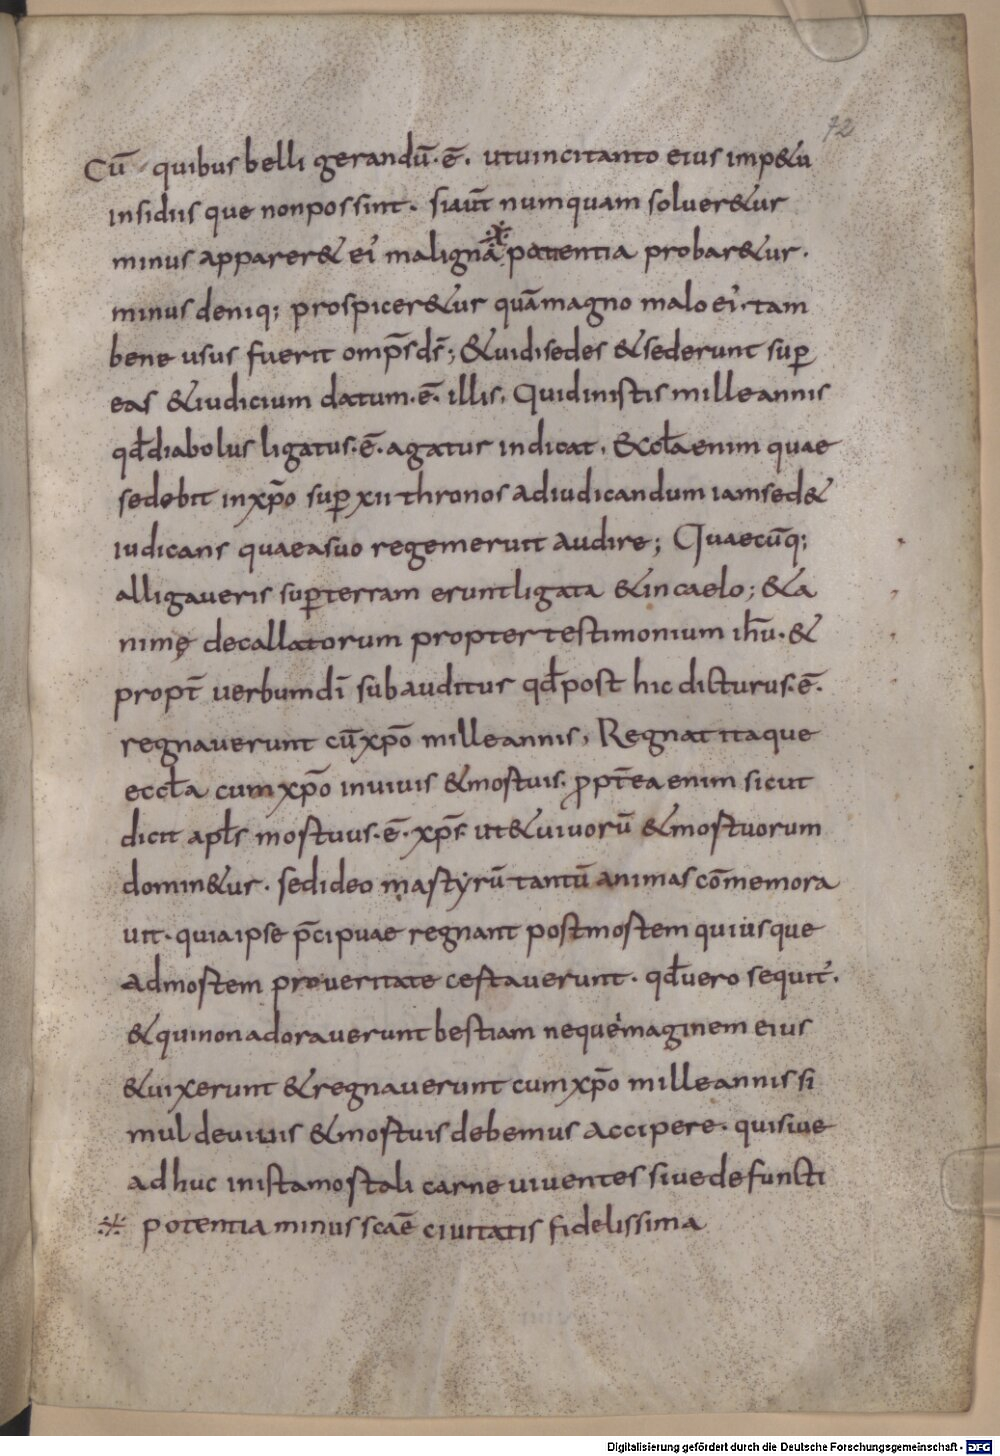 72
Cū quibus belli gerandū·ē· utuincitanto eius imp&u
insidiis que nonpossint· siaūt numquam soluer&ur
minus apparer& ei malignā patientia probar&ur·
minus deniq; prospicer&ur quāmagno malo ei·tam
bene usus fuerit omp̄s ds̄; &uidisedes &sederunt sup̱
eas &iudicium datum·ē· illis, Quidinistis milleannis
qd̄diabolus ligatus·ē·agatur indicat, &ccl̄aenim quae
sedebit inxp̄o sup̱ xii thronos adiudicandum iamsed&
iudicans quaeasuo regemeruit audire; Quaecūq;
alligaueris sup̱terram eruntligata &incaelo; &a
nimę decallatorum propter testimonium ih̄u·&
propt̄ uerbumdī subauditur qd̄post hic dicturus·ē·
regnauerunt cūxp̄o milleannis, Regnat itaque
eccl̄a cum xp̄o inuiuis &mortuis· ꝓpt̄ea enim sicut
dicit apl̄s mortuus·ē·xp̄s ut&uiuorū &mortuorum
domin&ur· sedideo martyrū tantū animas cōmemora
uit·quiaipse p̄cipuae regnant postmortem quiusque
admortem proueritate certauerunt· qd̄uero sequit̄·
&quinonadorauerunt bestiam nequeimaginem eius
&uixerunt &regnauerunt cumxp̄o milleannis si
mul deuiuis &mortuis debemus accipere· quisiue
adhuc inistamortali carne uiuentes siuedefuncti
※ potentia minus scāe ciuitatis fidelissima
Digitalisierung gefördert durch die Deutsche Forschungsgemeinschaft - DFG